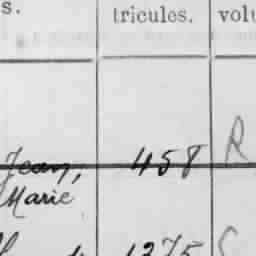 s. tricules. volu
Jean, 458 R
Marie
1375